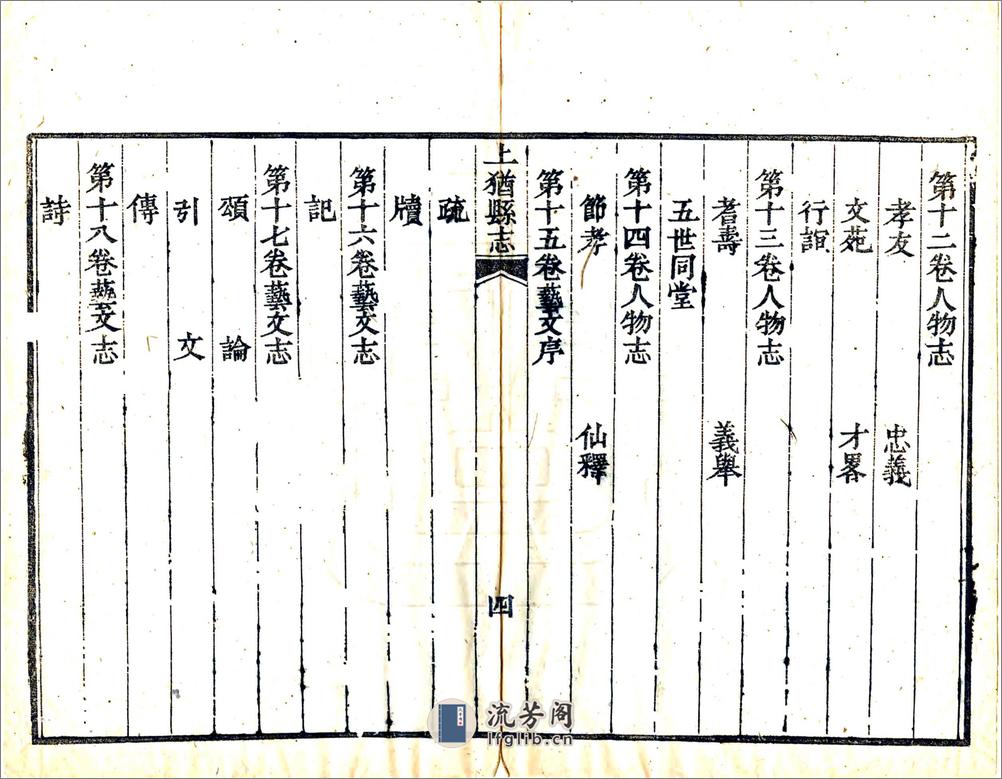 第十二卷人物志
孝友 忠義
文苑 才畧
行誼
第十三卷人物志
耆壽 義舉
五世同堂
第十四卷人物志
節孝 仙釋
第十五卷藝文序
上猶縣志 四
疏
牘
第十六卷藝文志
記
第十七卷藝文志
頌 論
引 文
傳
第十八卷藝文志
詩
流芳阁
lfglib.cn